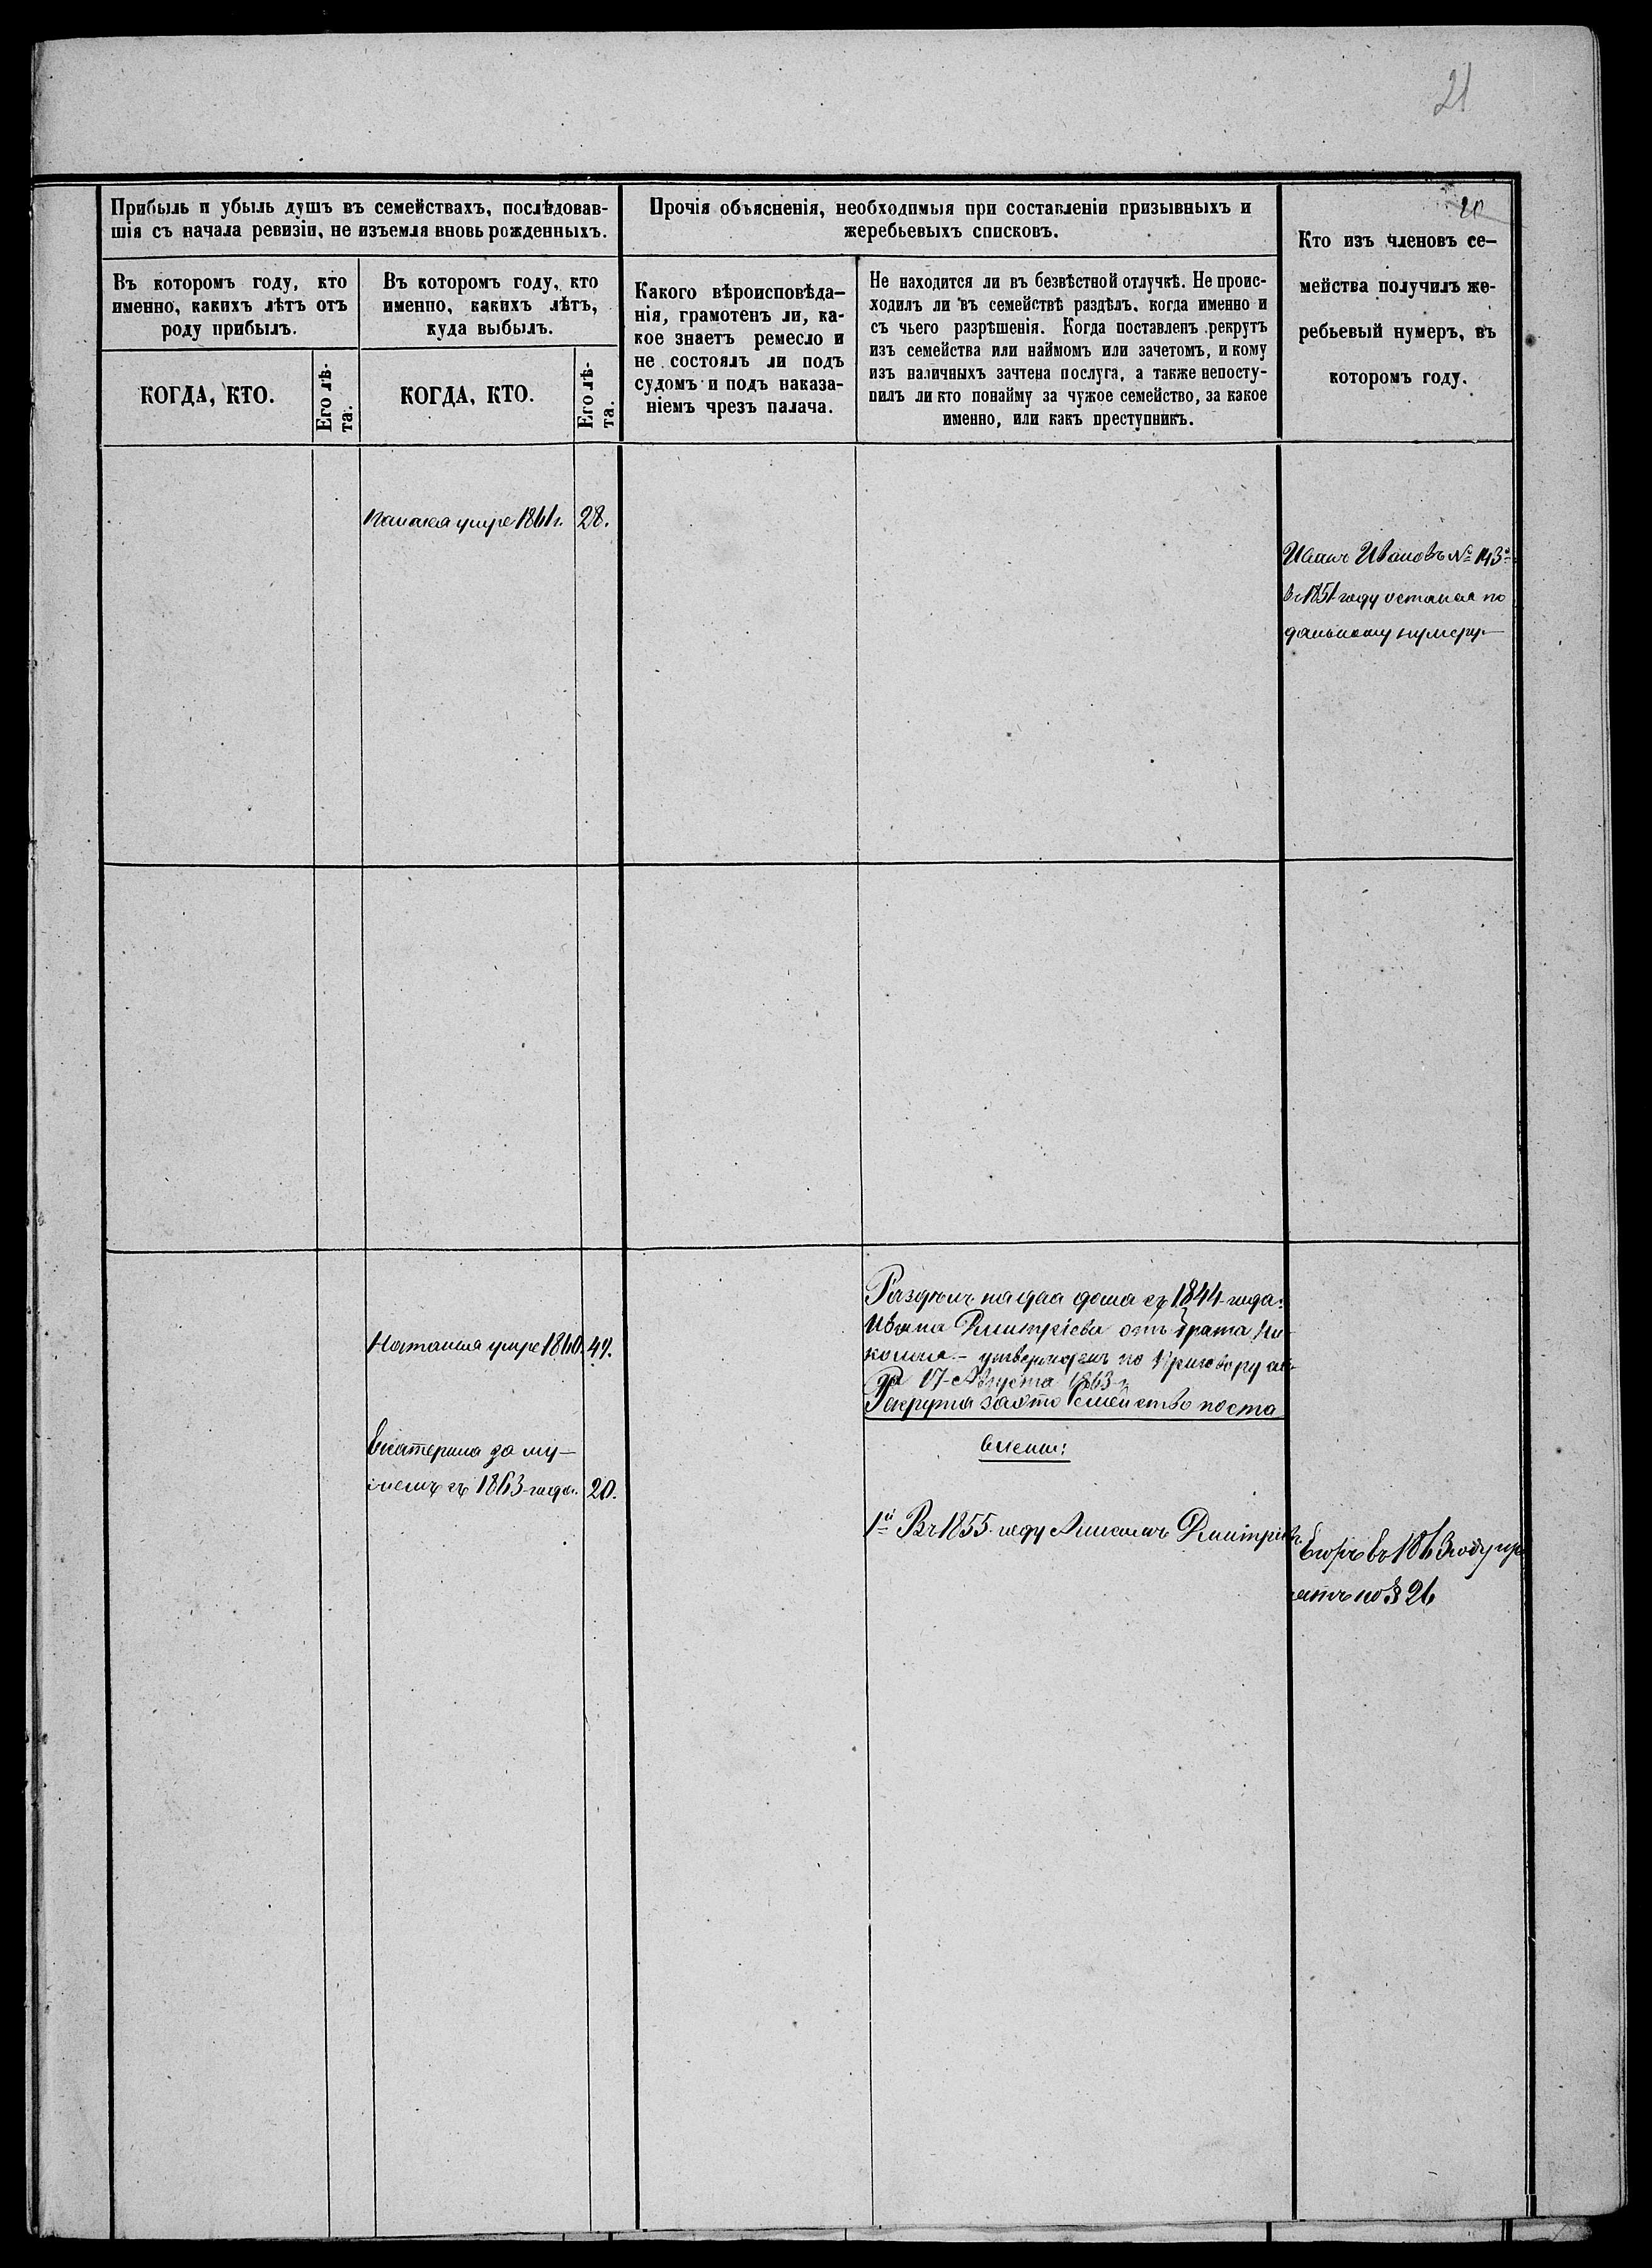 21
20
Прибыль и убыль душъ въ семействахъ, послѣдовав-
шія съ начала ревизіи, не изъемля вновь рожденныхъ.
Прочія объясненія, необходимыя при составленіи призывныхъ и
жеребьевыхъ списковъ.
Кто изъ членовъ се-
мейства получилъ же-
ребьевый нумеръ, въ
которомъ году.
Въ которомъ году, кто
именно, какихъ лѣтъ отъ
роду прибылъ.
Въ которомъ году, кто
именно, какихъ лѣтъ,
куда выбылъ.
Какого вѣроисповѣда-
нія, грамотенъ ли, ка-
кое знаетъ ремесло и
не состоялъ ли подъ
судомъ и подъ наказа-
ніемъ чрезъ палача.
Не находится ли въ безвѣстной отлучкѣ. Не проис-
ходилъ ли въ семействѣ раздѣлъ, когда именно и
съ чьего разрѣшенія. Когда поставленъ рекрутъ
изъ семейства или наймомъ или зачетомъ, и кому
изъ наличныхъ зачтена послуга, а также непосту-
пилъ ли кто понайму за чужое семейство, за какое
именно, или какъ преступникъ.
КОГДА, КТО.
Его лѣ-
та.
КОГДА, КТО.
Его лѣ-
та.
умре 1861 г. 28.
Иванъ Ивановъ № 143й
въ 1851 году остался по
дальному нумеру
Раздѣлъ на два дома съ 1844 года
Ивана Дмитріева отъ брата Ни
колая – утвержденъ по приговору
17 Августа 1863 г.
Рекрута заэто семейство поста
влены:
Наталия умре 1860. 49.
Екатерина за му-
жемъ съ 1863 года. 20.
1й Въ 1855 году Дмитріевъ
Егоръ въ 1863 году
по § 26